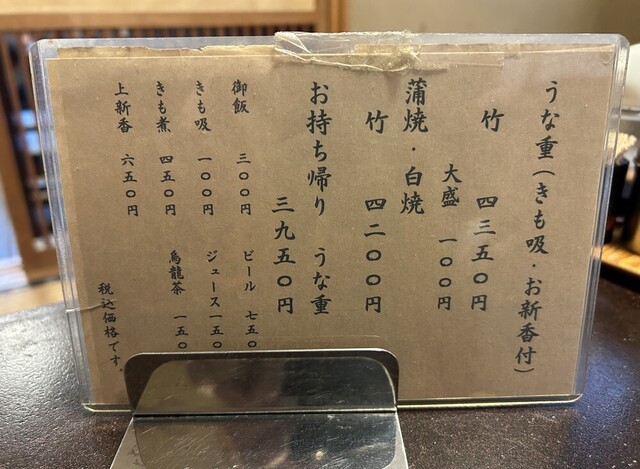 うな重（きも吸・お新香付）
竹 四三五〇円
大盛 一〇〇円
蒲焼・白焼
竹 四二〇〇円
お持ち帰り うな重
三九五〇円
御飯 三〇〇円
きも吸 一〇〇円
きも煮 四五〇円
上新香 六五〇円
ビール 七五〇
ジュース 一五〇
烏龍茶 一五〇
税込価格です。